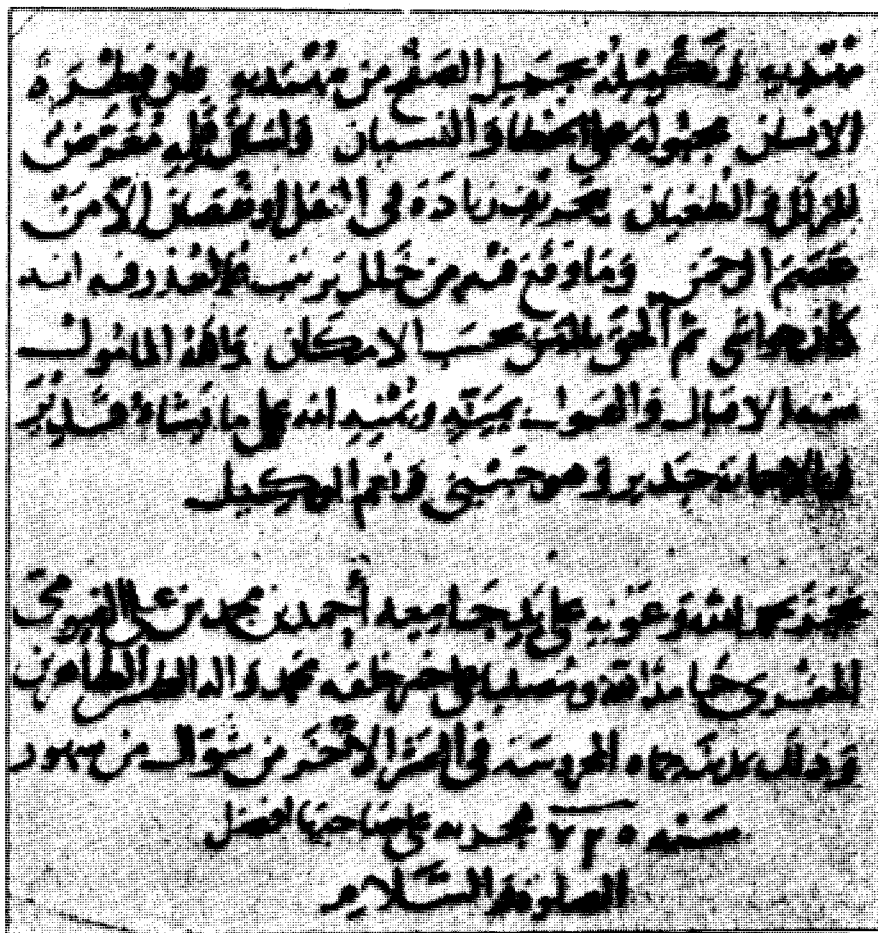 منتهيه وتكميله بجميل الصفح من مبتديه فان فطرة
الانسان مجبولة على الخطا والنسيان ولسان قلمه معترض
للزلل والطغيان بتحريف زيادة في النقل او نقصان الا من
عصم الرحمن وما وقع فيه من خلل ترتيب فالعذر فيه انه
كان حواشي ثم الحق بالمتن بحسب الامكان والله المامول
الاقبال والصواب بمنه ويمنه انه على ما يشاء قدير
وبالاجابة جدير وهو حسبي ونعم الوكيل
نجز بحمد الله وعونه على يد جامعه أحمد بن محمد بن علي الفيومي
المقري حامدا لله ومصليا على خير خلقه محمد واله الطاهرين
وذلك بمدينة حماه المحروسة في العشر الاخر من شوال من شهور
سنه ٧٢٠ على صاحبها افضل
الصلوة والسلام